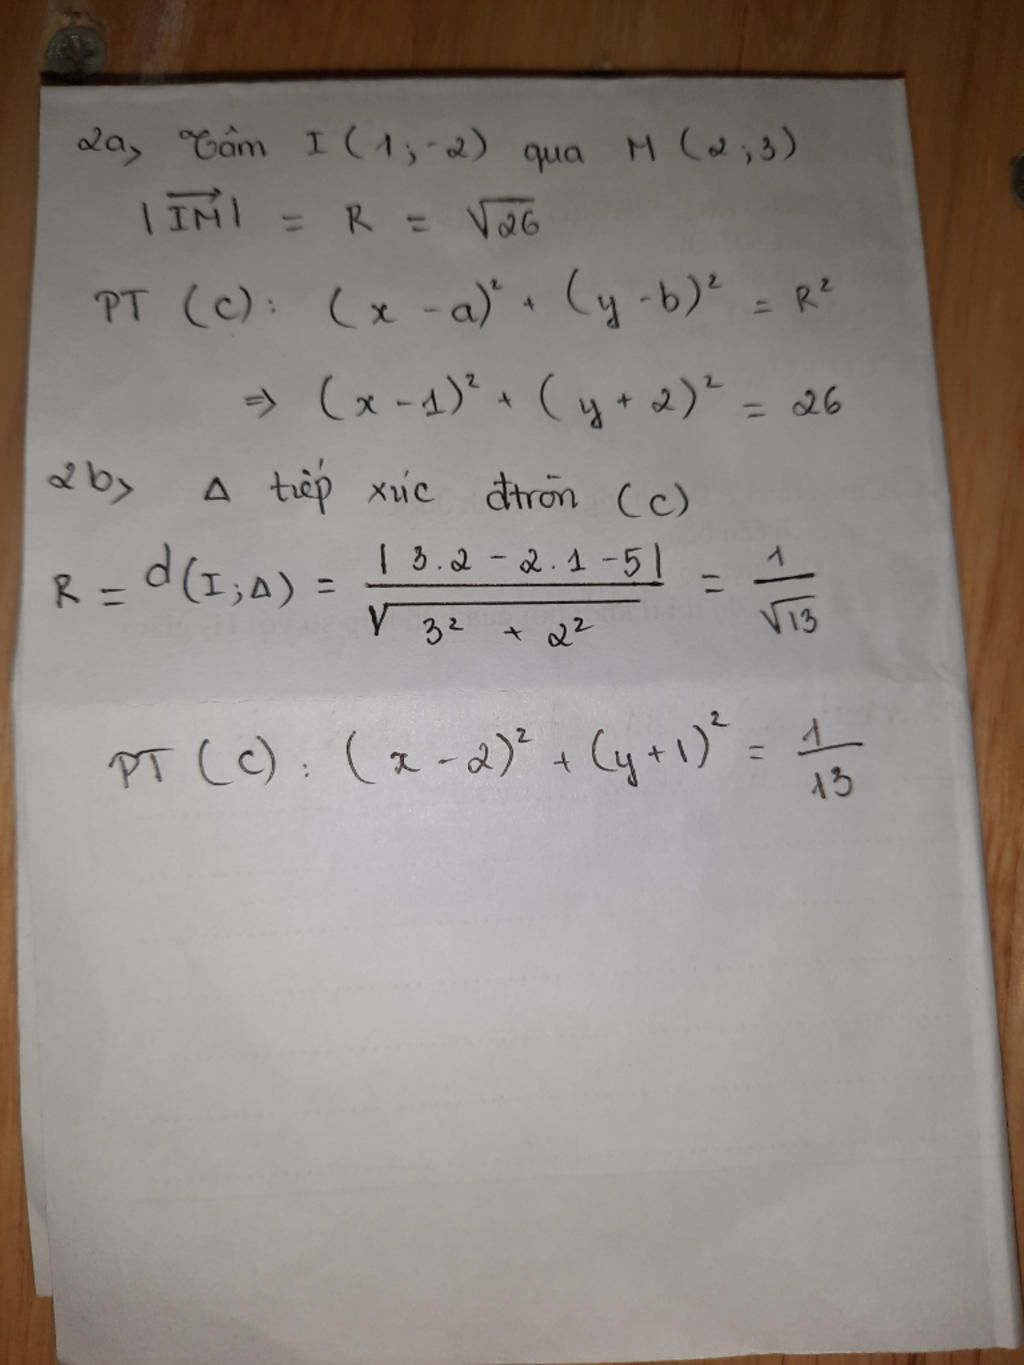 2a, Tâm I (1;-2) qua M (2;3)
|IM| = R = √26
PT (C): (x - a)² + (y - b)² = R²
⇒ (x - 1)² + (y + 2)² = 26
2b, Δ tiếp xúc đtròn (C)
R = d(I;Δ) = |3.2 - 2.1 - 5| / √(3² + 2²) = 1/√13
PT (C): (x - 2)² + (y + 1)² = 1/13